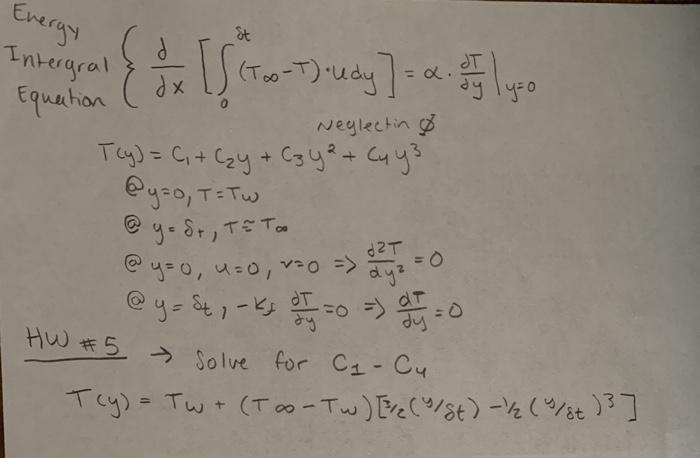 Energy
Intergral
Equation { d/dx [ ∫₀^δt (T∞-T)·udy ] = α · dT/dy |y=0
Neglectin ∅
T(y) = C₁ + C₂y + C₃y² + C₄y³
@y=0, T=Tw
@ y=δt, T≅T∞
@ y=0, u=0, v=0 => d²T/dy² = 0
@ y=δt, -Kf dT/dy =0 => dT/dy =0
HW #5 → Solve for C1 - C4
T(y) = Tw + (T∞-Tw)[3/2(y/δt) -1/2(y/δt)³]